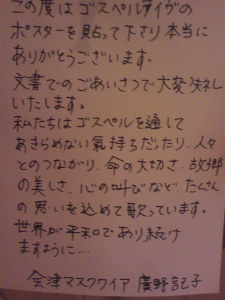 この度はゴスペルライヴの
ポスターを貼って下さり本当に
ありがとうございます。
文書でのごあいさつで大変失礼
いたします。
私たちはゴスペルを通して
あきらめない気持ちだったり、人々
とのつながり、命の大切さ、故郷
の美しさ、心の叫びなど、たくさん
の思いを込めて歌っています。
世界が平和であり続け
ますように…
会津マスクワイア 廣野記子